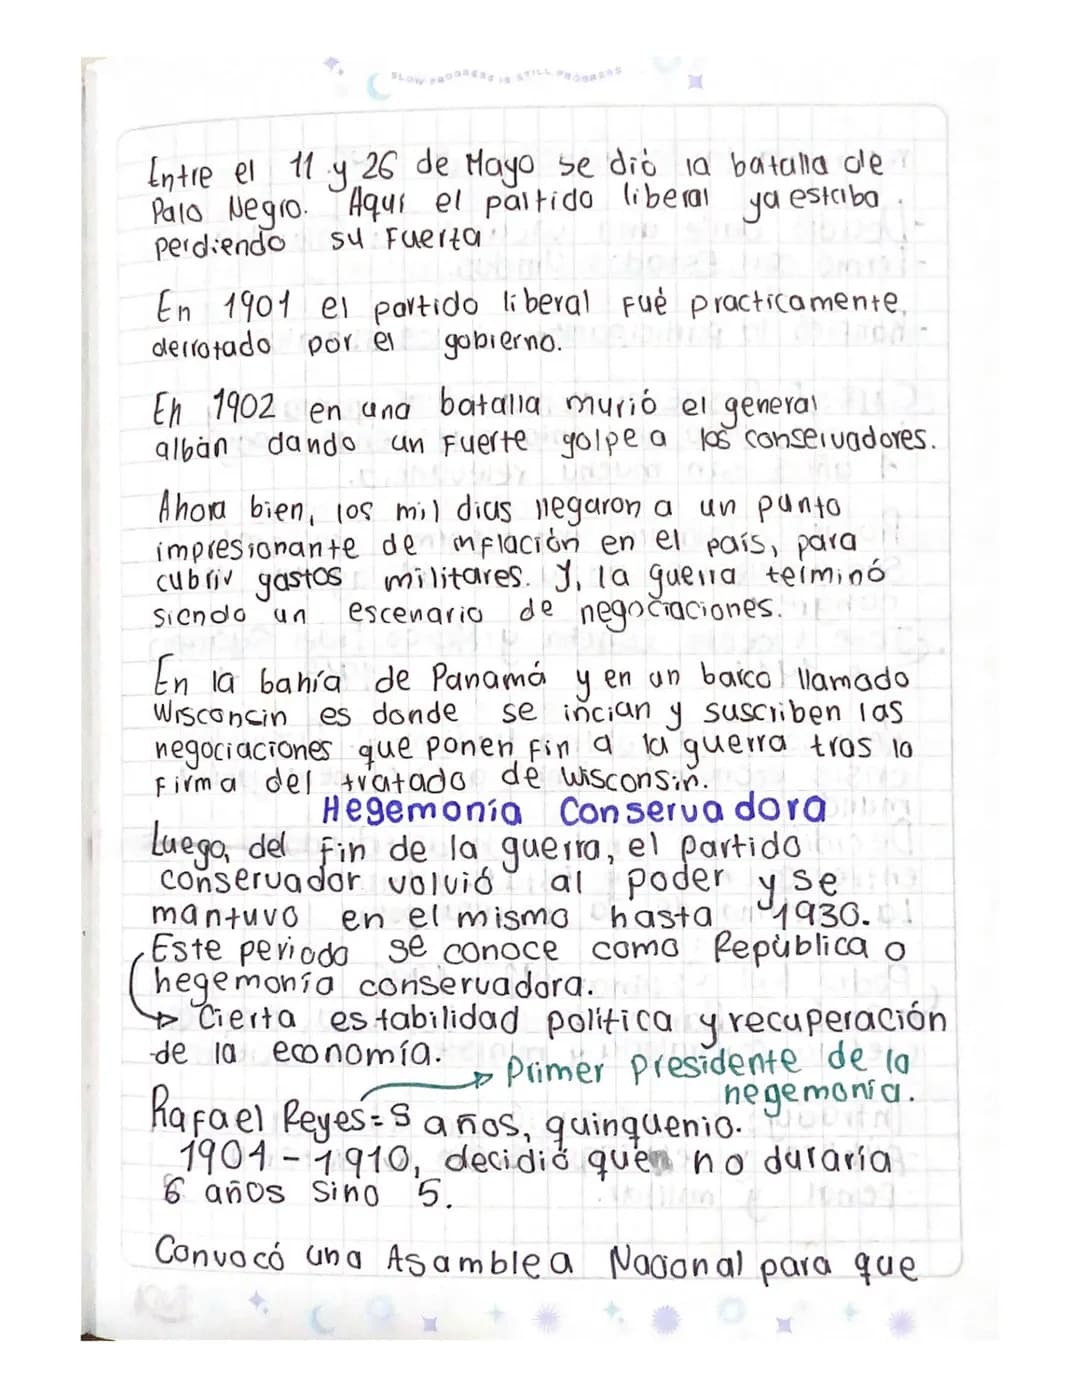 SLOW PROGRESS IS STILL PROGRESS
Entre el 11 y 26 de Mayo se dió la batalla de
Palo Negro. Aqui el partido liberal ya estaba
perdiendo su Fuerta
En 1901 el partido liberal Fué practicamente
derrotado por el gobierno.
En 1902 en una batalla murió el general
albán dando un Fuerte golpe a los conservadores.
Ahora bien, los mil dias llegaron a un punto
impresionante de inflación en el país, para
cubrir gastos militares. Y, la guerra terminó
siendo un escenario de negociaciones.
En la bahía de Panamá y en un barco llamado
Wisconcin es donde se incian y suscriben las
negociaciones que ponen fin a la guerra tras la
Firma del tratado de Wisconsin.
Hegemonía Conservadora
Luego, del fin de la guerra, el partido
conservador volvió al poder y se
mantuvo en el mismo hasta 1930.
Este periodo se conoce como República o
hegemonía conservadora.
Cierta estabilidad política y recuperación
de la economía.
Primer Presidente de la
hegemonía.
Rafael Reyes=5 años, quinquenio.
1904-1910, decidió que no duraría
6 años Sino 5.
Convocó una Asamblea Nacional para que